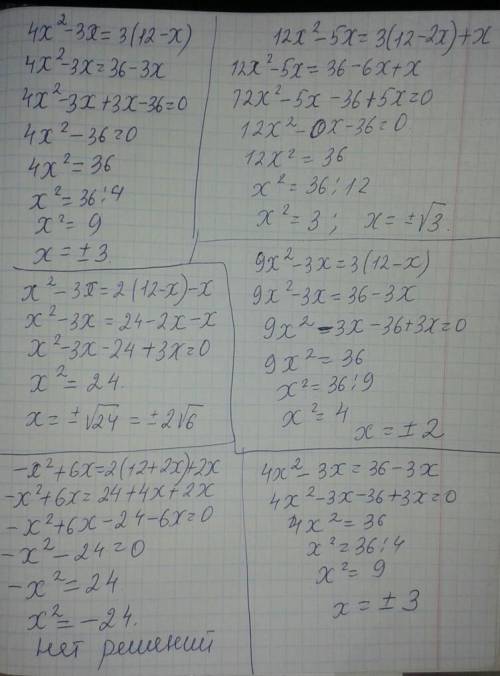 4x²-3x=3(12-x)
4x²-3x=36-3x
4x²-3x+3x-36=0
4x²-36=0
4x²=36
x²=36:4
x²=9
x=±3
12x²-5x=3(12-2x)+x
12x²-5x=36-6x+x
12x²-5x-36+5x=0
12x²-0x-36=0
12x²=36
x²=36:12
x²=3; x=±√3.
x²-3x=2(12-x)-x
x²-3x=24-2x-x
x²-3x-24+3x=0
x²=24.
x=±√24=±2√6
9x²-3x=3(12-x)
9x²-3x=36-3x
9x²-3x-36+3x=0
9x²=36
x²=36:9
x²=4
x=±2
-x²+6x=2(12+2x)+2x
-x²+6x=24+4x+2x
-x²+6x-24-6x=0
-x²-24=0
-x²=24
x²=-24.
нет решений
4x²-3x=36-3x
4x²-3x-36+3x=0
4x²=36
x²=36:4
x²=9
x=±3